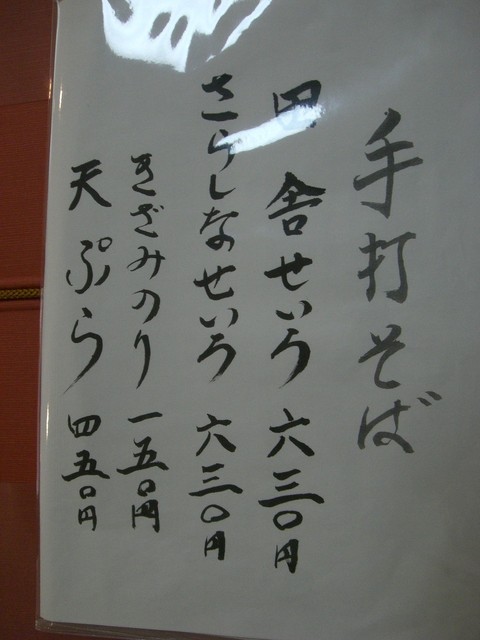 手打そば
田舎せいろ 六三〇円
さらしなせいろ 六三〇円
きざみのり 一五〇円
天ぷら 四五〇円